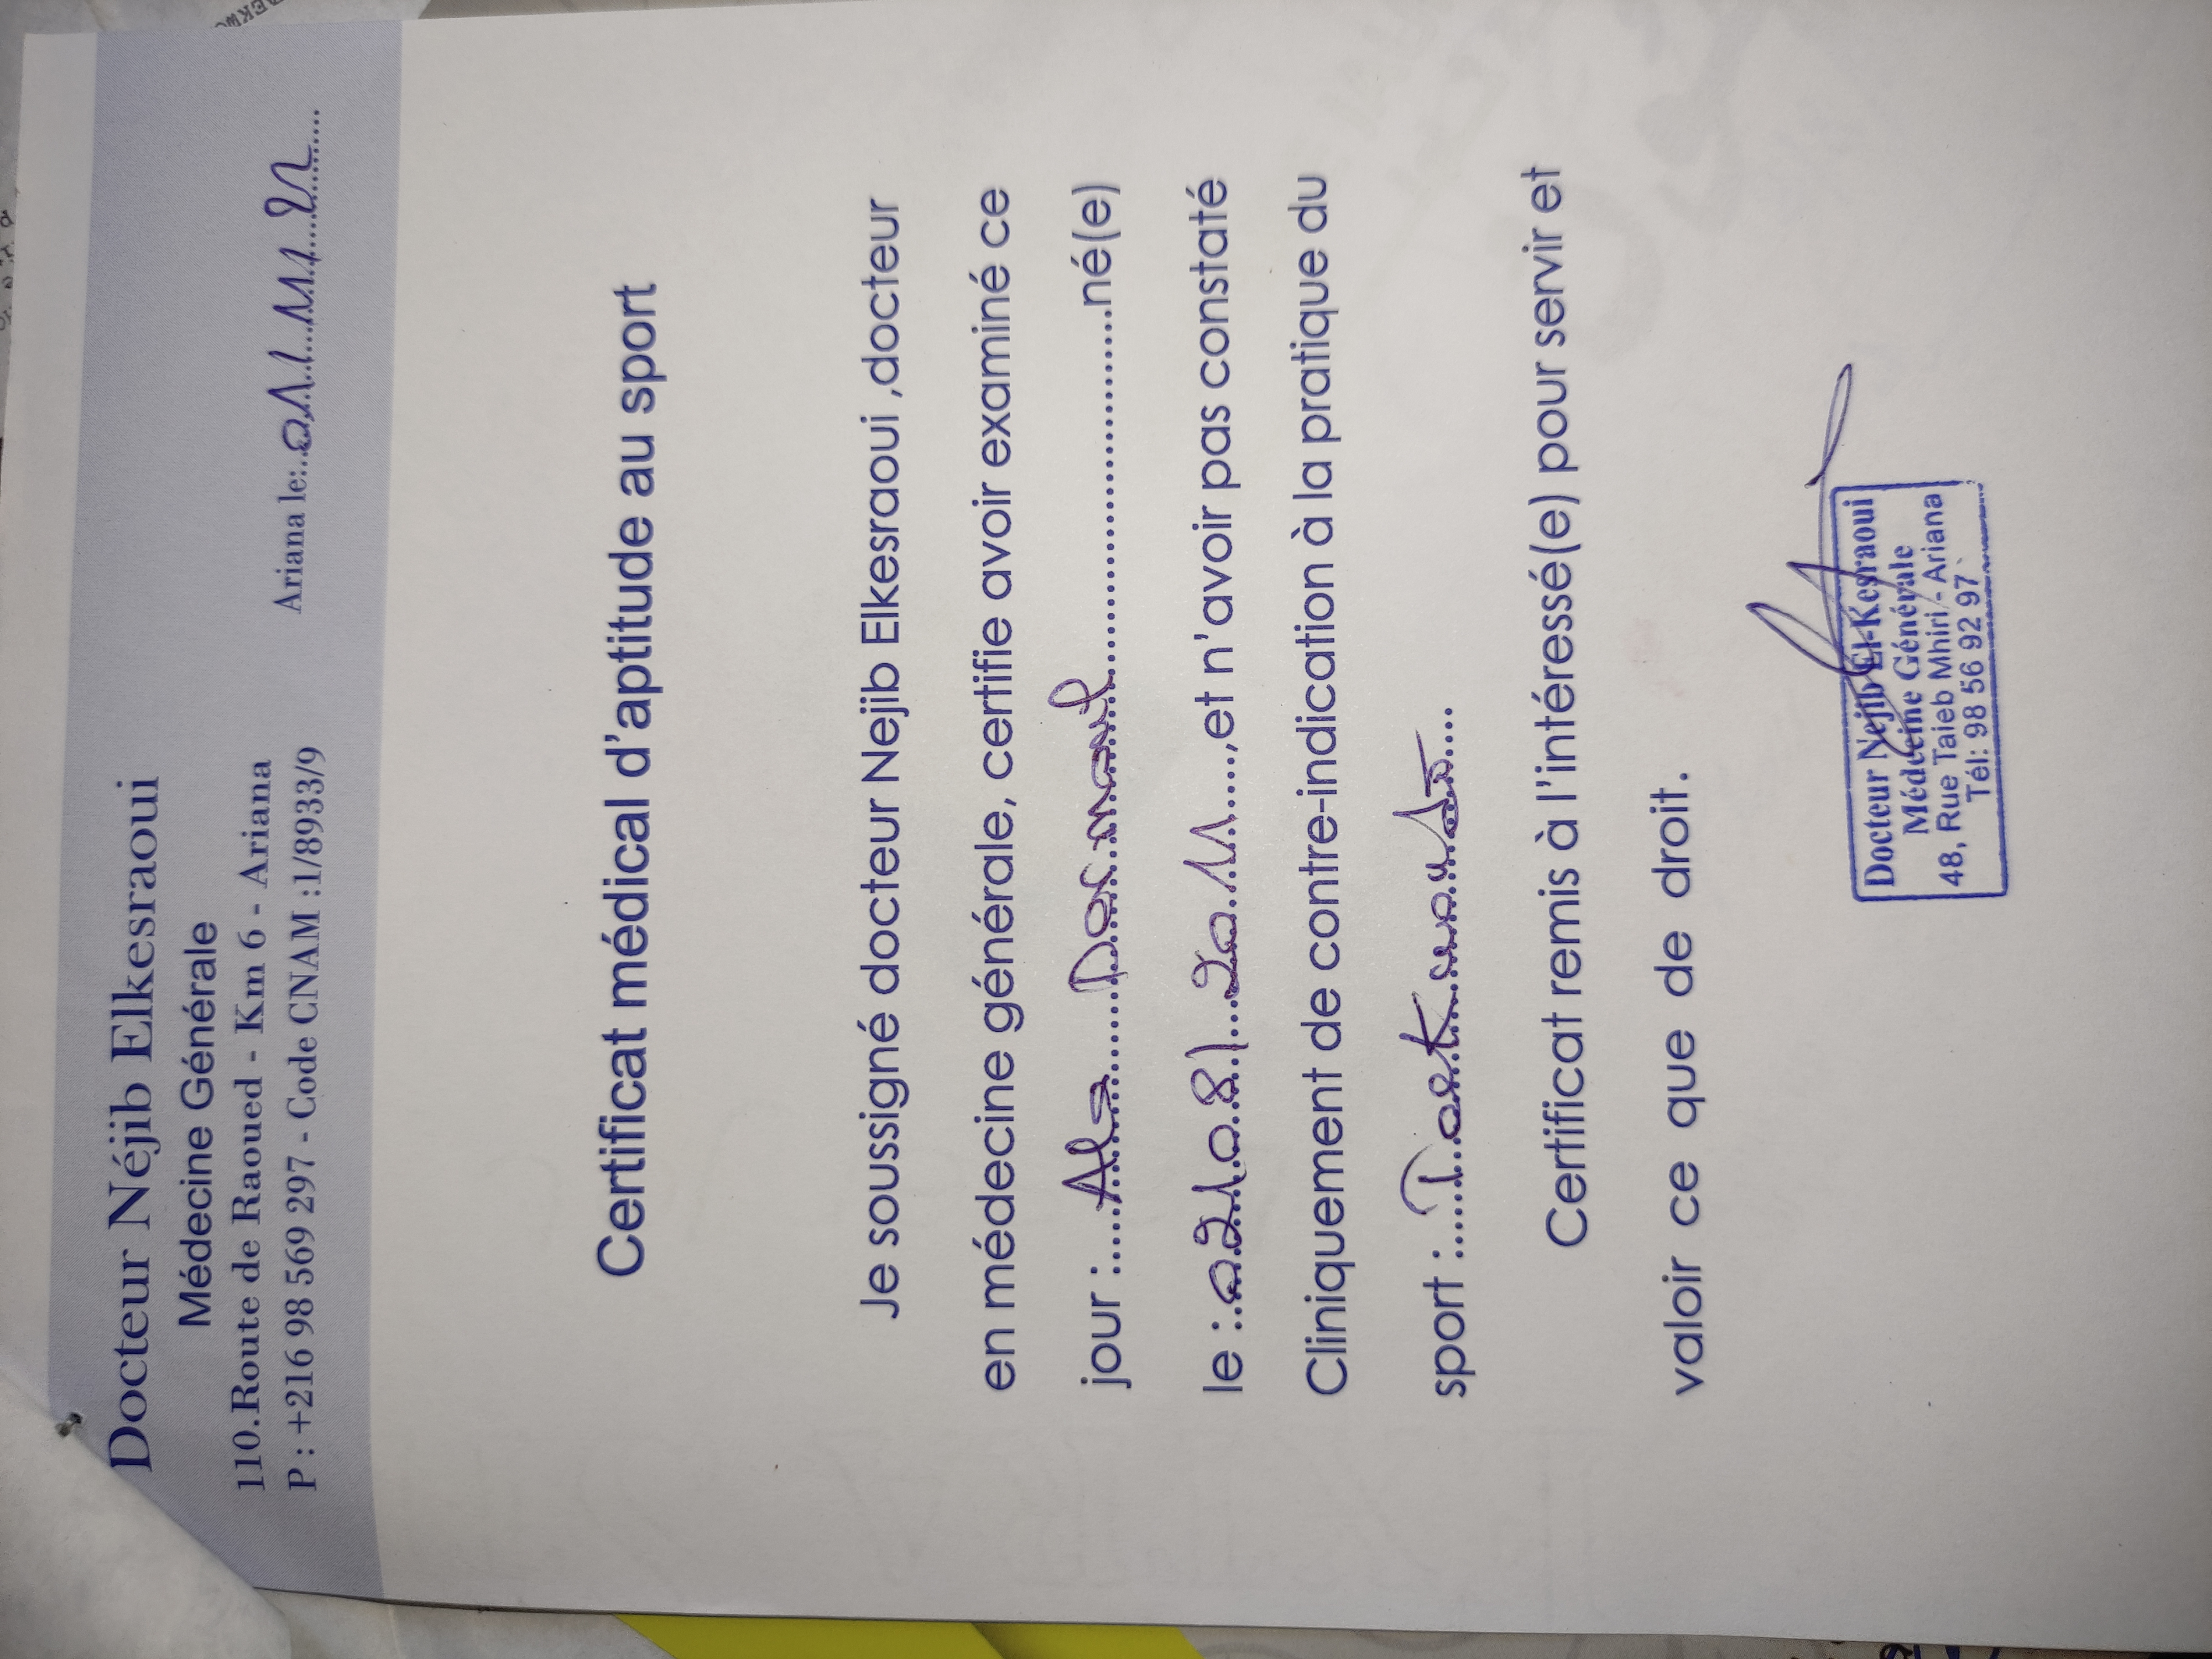 Docteur Néjib Elkesraoui
Médecine Générale
110.Route de Raoued - Km 6 - Ariana
P : +216 98 569 297 - Code CNAM :1/8933/9
Ariana le:
Certificat médical d'aptitude au sport
Je soussigné docteur Nejib Elkesraoui ,docteur
en médecine générale, certifie avoir examiné ce
jour :.....Ala..........né(e)
le :..02/08/2011.....,et n'avoir pas constaté
Cliniquement de contre-indication à la pratique du
sport :.....
Certificat remis à l'intéressé(e) pour servir et
valoir ce que de droit.
Docteur Nejib El-Kesraoui
Médecine Générale
48, Rue Taieb Mhiri - Ariana
Tél: 98 56 92 97